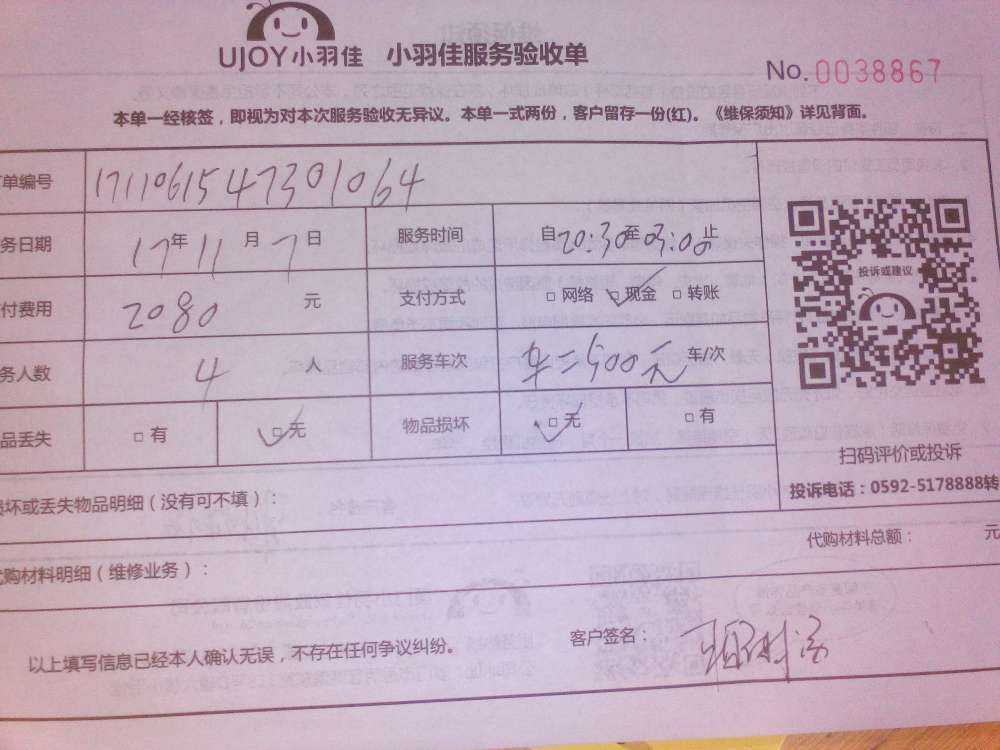 UJOY小羽佳 小羽佳服务验收单
No.0038867
本单一经核签，即视为对本次服务验收无异议。本单一式两份，客户留存一份(红)。《维保须知》详见背面。
单编号 1711061547301064
务日期 17年11月7日 服务时间 自20:30至03:00止
付费用 2080元 支付方式 □网络 □现金 □转账
投诉或建议
务人数 4人 服务车次 车=500元 车/次
品丢失 □有 □无 物品损坏 □无 □有
扫码评价或投诉
损坏或丢失物品明细（没有可不填）：
投诉电话：0592-5178888转
代购材料总额： 元
代购材料明细（维修业务）：
以上填写信息已经本人确认无误，不存在任何争议纠纷。 客户签名：